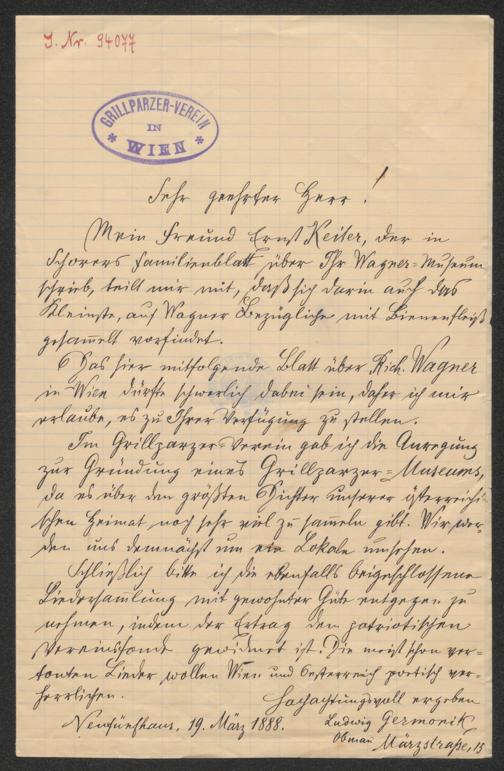 J. Nr. 94077
GRILLPARZER-VEREIN
IN
WIEN
Sehr geehrter Herr!
Mein Freund Ernst Keiter, der in
Schorers Familienblatt über Ihr Wagner-Museum
schrieb, teilt mir mit, daß sich darin auch das
Kleinste, auf Wagner Bezügliche mit Bienenfleiß
gesammelt vorfindet.
Das hier mitfolgende Blatt über Rich. Wagner
in Wien dürfte schwerlich dabei sein, daher ich mir
erlaube, es zu Ihrer Verfügung zu stellen.
Im Grillparzer-Verein gab ich die Anregung
zur Gründung eines Grillparzer-Museums,
da es über den größten Dichter unserer österreichi-
schen Heimat noch sehr viel zu sammeln gibt. Wir wer-
den uns demnächst um ein Lokale umsehen.
Schließlich bitte ich die ebenfalls beigeschlossene
Liedersammlung mit gewohnter Güte entgegen zu
nehmen, indem der Ertrag dem patriotischen
Vereinsfonde gewidmet ist. Die meist schon ver-
tonten Lieder wollen Wien und Oesterreich poetisch ver-
herrlichen.
Hochachtungsvoll ergeben
Neufünfhaus, 19. März 1888.
Ludwig Germonik,
Obmann
Märzstraße, 15